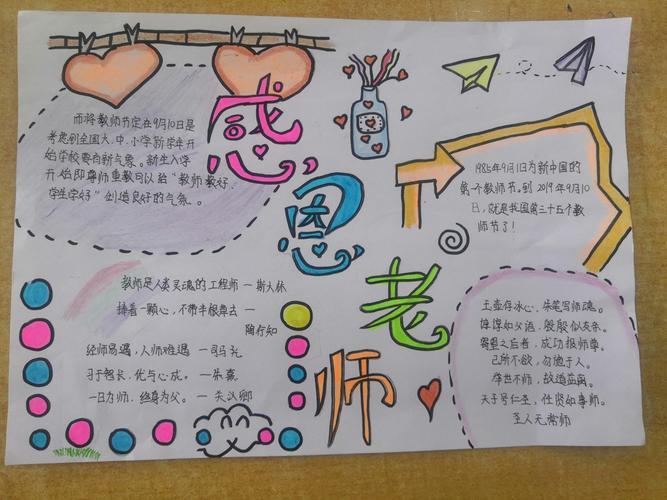 感恩老师
而将教师节定在9月10日是
考虑到全国大、中、小学新学年开
始学校要有新气象。新生入学
开始即尊师重教可以给“教师教好、
学生学好”创造良好的气氛。
1985年9月1日为新中国的
第一个教师节。到2019年9月10
日,就是我国第三十五个教
师节了!
教师是人类灵魂的工程师—斯大林
捧着一颗心,不带半根草去—
陶行知
经师易遇,人师难遇—司马光
习于智长,优与心成。—朱熹
一日为师,终身为父。—关汉卿
玉壶存冰心,朱笔写师魂。
谆谆如父语,殷殷似友亲。
蜀望之后者,成功报师尊。
己所不欲,勿施于人。
举世不师,故道益离。
天子号仁圣,任贤如事师。
至人无常师